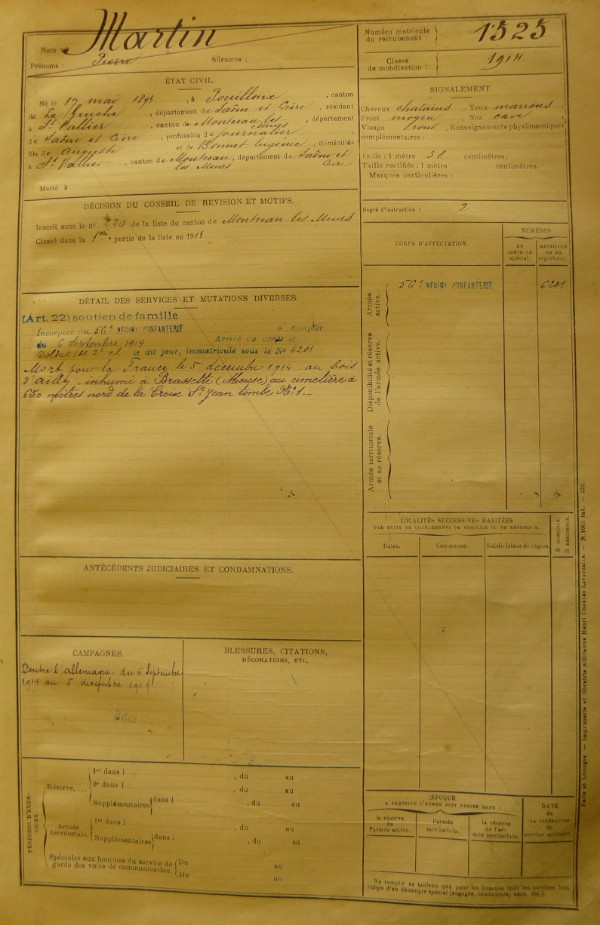 Nom : Martin
Prénoms : Pierre
Surnoms :
Numéro matricule du recrutement : 1525
Classe de mobilisation : 1914
ÉTAT CIVIL.
Né le 17 mai à Pouilloux, canton
de La Guiche, département de Saône et Loire, résidant
à St Vallier, canton de Montceau les Mines, département
de Saône et Loire, profession de journalier
fils de Auguste et de Bonnet Eugénie, domiciliés
à St Vallier, canton de Montceau les Mines, département de Saône et Loire
Marié à
SIGNALEMENT.
Cheveux chatains Yeux marrons
Front moyen Nez cave
Visage rond Renseignements physionomiques
complémentaires :
Taille : 1 mètre 58 centimètres.
Taille rectifiée : 1 mètre centimètres.
Marques particulières :
Degré d'instruction : 2
DÉCISION DU CONSEIL DE RÉVISION ET MOTIFS.
Inscrit sous le no 220 de la liste du canton de Montceau les Mines
Classé dans la partie de la liste en 1914
CORPS D'AFFECTATION.
NUMÉROS
AU CONTRÔLE SPÉCIAL.
MATRICULE OU AU RÉPERTOIRE.
Armée active.
56e RÉGIMt D'INFANTERIE
6201
Disponibilité et réserve de l'armée active.
Armée territoriale et sa réserve.
DÉTAIL DES SERVICES ET MUTATIONS DIVERSES.
(Art. 22) soutien de famille
Incorporé au 56e RÉGIMt D'INFANTERIE à compter
du 6 Septembre 1914 Arrivé au corps et
soldat de 2e cl. le dit jour, immatriculé sous le No 6201
Mort pour la France le 5 décembre 1914 au bois
d'Ailly - inhumé à Brassette (Meuse) au cimetière à
650 mètres nord de la Croix St Jean tombe No 1 _
LOCALITÉS SUCCESSIVES HABITÉES
PAR SUITE DE CHANGEMENTS DE DOMICILE OU DE RÉSIDENCE.
Dates.
Communes.
Subdivisions de région.
D. DOMICILE.
R. RÉSIDENCE.
ANTÉCÉDENTS JUDICIAIRES ET CONDAMNATIONS.
CAMPAGNES.
Contre l'allemagne du 6 Septembre
1914 au 5 décembre 1914
BLESSURES, CITATIONS,
DÉCORATIONS, ETC.
PÉRIODES D'EXERCICES.
Réserve.... 1re dans l , du au
2e dans l , du au
Supplémentaires dans l , du au
Armée territoriale. 1re dans l , du au
Supplémentaires dans l , du au
Spéciales aux hommes du service de garde des voies de communication. Du au
Du au
ÉPOQUE
À LAQUELLE L'HOMME DOIT PASSER DANS :
la réserve de l'armée active.
l'armée territoriale.
la réserve de l'armée territoriale.
DATE
de la libération du service militaire.